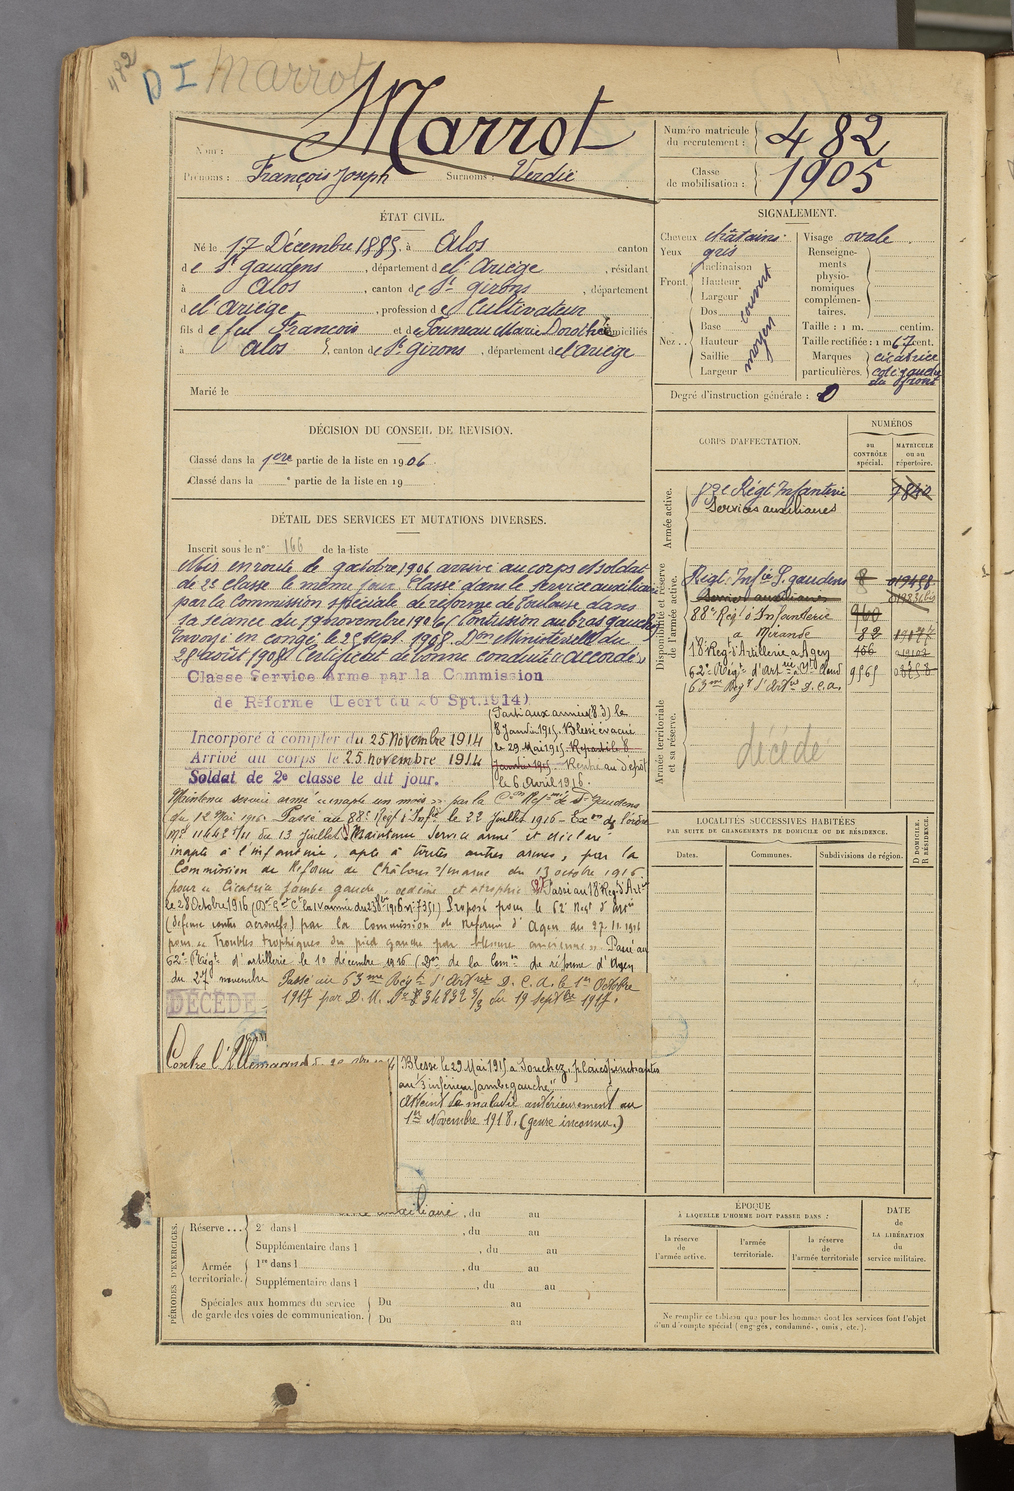 482
D I Marrot
Marrot
Nom :
Prénoms : François Joseph Surnoms : Verdié
Numéro matricule du recrutement : 482
Classe de mobilisation : 1905
ÉTAT CIVIL.
Né le 17 Décembre 1885, à Alos canton
de St gaudens, département de l'Ariège, résidant
à Alos, canton de St girons, département
d el'ariège, profession de Cultivateur
fils de feu François et de Touneau Marie Dorothée domiciliés
à Alos, canton de St girons, département de l'ariège
Marié le
SIGNALEMENT.
Cheveux châtains
Yeux gris
Front. Inclinaison
Hauteur
Largeur
Nez.. Dos
Base
Hauteur
Saillie
Largeur
couvert
moyen
Visage ovale
Renseignements physionomiques complémentaires.
Taille : 1 m. centim.
Taille rectifiée : 1 m 67 cent.
Marques particulières. cicatrice coté gauche du front
Degré d'instruction générale : 0
DÉCISION DU CONSEIL DE REVISION.
Classé dans la 1ere partie de la liste en 1906
Classé dans la e partie de la liste en 19
DÉTAIL DES SERVICES ET MUTATIONS DIVERSES.
Inscrit sous le n° 166 de la liste
Mis en route le 9 octobre 1906 arrivé au corps et soldat
de 2e classe le même jour. Classé dans le service auxiliaire
par la Commission spéciale de réforme de Toulouse dans
sa séance du 19 novembre 1906 (Contusion au bras gauche)
Envoyé en congé le 25 sept. 1908. Don Ministerielle du
28 août 1908. Certificat de bonne conduite "accordé"
Classe Service Arme par la Commission
de Réforme (Decrt du 26 Spt. 1914)
Incorporé à compter du 25 Novembre 1914
Arrivé au corps le 25 novembre 1914
Soldat de 2e classe le dit jour.
Parti aux armées (83) le
8 Janvier 1915. Blessé évacué
le 29 Mai 1915. Reparti le 8
Janvier 1915. Rentré au dépôt
le 6 Avril 1916.
Maintenu service armé "inapte un mois" par la Con Refme de St Gaudens
du 12 Mai 1916. Passé au 88e Regt d'Infie le 22 Juillet 1916 - Exon de l'ordre
Mel 11442 1/11 du 13 Juillet. Maintenu Service armé et déclaré
inapte à l'infanterie, apte à toutes autres armes, par la
Commission de Réforme de Châlons s/marne du 13 octobre 1916.
pour "Cicatrice jambe gauche, oedème et atrophie" Passé au 18e Reg. d'Artie
le 28 Octobre 1916 Proposé pour le 62e Regt d'Artie
(défense contre aeronefs) par la Commission de Reforme d'Agen du 27.11.1916
pour "Troubles trophiques du pied gauche par blessure ancienne". Passé au
62e Regt d'artillerie le 10 décembre 1916 (Don de la Comon de réforme d'Agen
du 27 novembre
Passé au 63me Régt d'Artrie D.C.A. le 1er Octobre
1917 par D.M. No 834832 3/3 du 19 septbre 1917.
DÉCÉDÉ
Contre l'Allemagne
Blessé le 29 Mai 1915 à Souchez, plaies pénétrantes
au 1/3 inférieur jambe gauche"
Atteint de maladie antérieurement au
1er Novembre 1918. (genre inconnu.)
CORPS D'AFFECTATION.
NUMÉROS
au CONTRÔLE spécial.
MATRICULE ou au répertoire.
Armée active.
Régt Infanterie 7840
Services auxiliaires
Disponibilité et réserve de l'armée active.
Régt Infie St gaudens 8
Service auxiliaire
88e Regt d'Infanterie 960
a Mirande 82
18e Regt d'Artillerie a Agen 466
62e Regt d'Artie a St Cloud 9565
63me Regt d'Artie D.C.A.
Armée territoriale et sa réserve.
décédé
LOCALITÉS SUCCESSIVES HABITÉES
PAR SUITE DE CHANGEMENTS DE DOMICILE OU DE RÉSIDENCE.
Dates. Communes. Subdivisions de région. D DOMICILE. R RÉSIDENCE.
PÉRIODES D'EXERCICES.
auxiliaire, du au
Réserve ... 2e dans l , du au
Supplémentaire dans l , du au
Armée territoriale. 1re dans l , du au
Supplémentaire dans l , du au
Spéciales aux hommes du service de garde des voies de communication. Du au
Du au
ÉPOQUE
À LAQUELLE L'HOMME DOIT PASSER DANS :
la réserve de l'armée active.
l'armée territoriale.
la réserve de l'armée territoriale
DATE de LA LIBÉRATION du service militaire.
Ne remplir ce tableau que pour les hommes dont les services font l'objet
d'un décompte spécial (engagés, condamnés, omis, etc.).